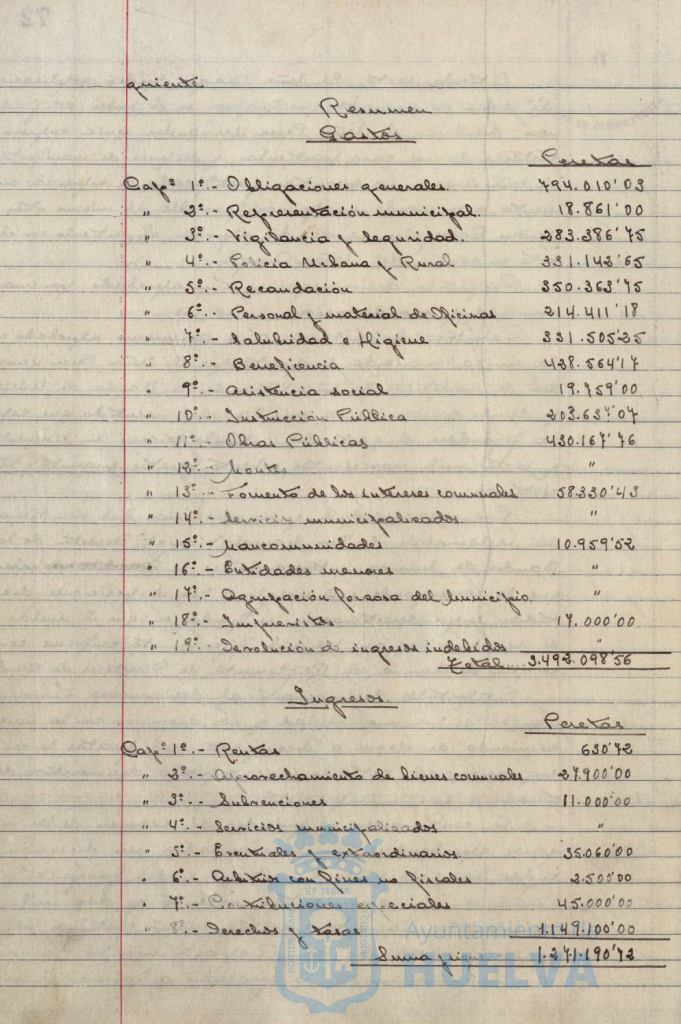 72
quiente
Resumen
Gastos
Pesetas
Capº 1º.- Obligaciones generales. 794.010'03
" 2º.- Representación municipal. 18.861'00
" 3º.- Vigilancia y Seguridad. 283.386'75
" 4º.- Policia Urbana y Rural 331.142'65
" 5º.- Recaudación 350.363'75
" 6º.- Personal y material de Oficinas 214.411'18
" 7º.- Salubridad e Higiene 331.505'25
" 8º.- Beneficencia 428.564'17
" 9º.- Asistencia social 19.759'00
" 10º.- Instrucción Pública 203.637'07
" 11º.- Obras Públicas 430.167'76
" 12º.- Montes "
" 13º.- Fomento de los intereses comunales 58.330'43
" 14º.- Servicios municipalizados. "
" 15º.- Mancomunidades 10.959'52
" 16º.- Entidades menores "
" 17º.- Agrupación forzosa del Municipio. "
" 18º.- Imprevistos 17.000'00
" 19º.- Devolución de ingresos indebidos "
Total... 3.492.098'56
Ingresos.
Pesetas
Capº 1º.- Rentas 630'72
" 2º.- Aprovechamiento de bienes comunales 27.900'00
" 3º.- Subvenciones 11.000'00
" 4º.- Servicios municipalizados "
" 5º.- Eventuales y extraordinarios 35.060'00
" 6º.- Arbitrios con fines no fiscales 2.500'00
" 7º.- Contribuciones especiales 45.000'00
" 8º.- Derechos y tasas 1.149.100'00
Suma y sigue 1.271.190'72
Ayuntamiento
HUELVA